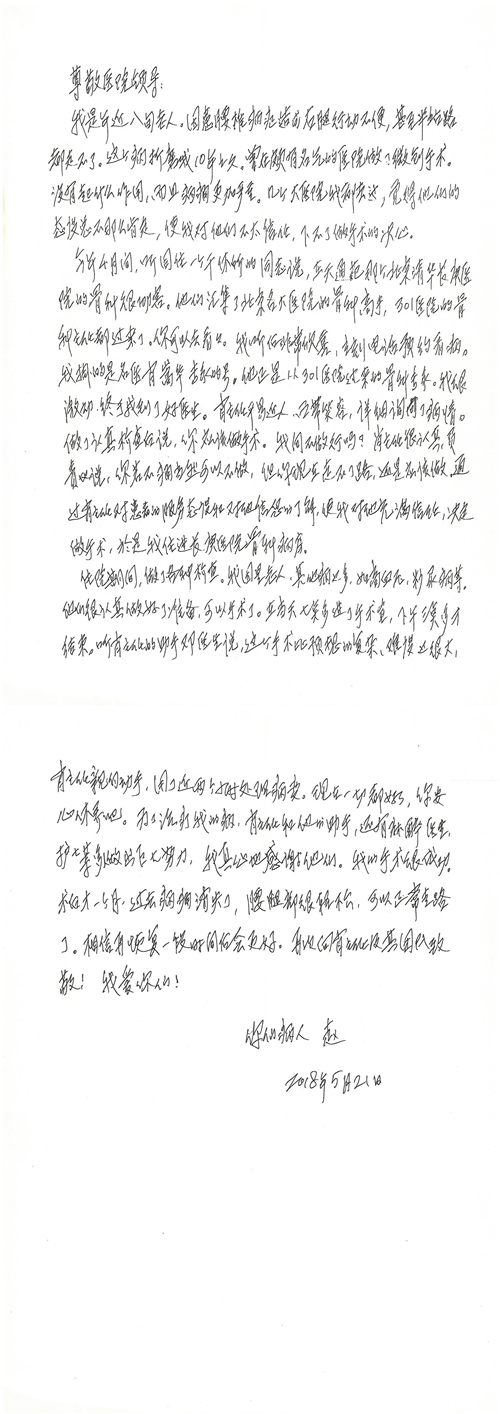 尊敬医院领导：
我是年近八旬老人。因患腰椎病症造成右腿行动不便，甚至半站路
都走不了。这个病折磨我10年之久。曾在颇有名气的医院做了微创手术。
没有起什么作用，而且病痛更加严重。几个大医院我都去过，觉得他们的
态度总不那么肯定，使我对他们不太信任，下不了做手术的决心。
今年4月间，听同住一个小区的同志说，在大通起那个北京清华长庚医
院的骨科很出名。他们汇集了北京各大医院的骨科高手，301医院的骨
科主任都过来了。你可以去看看。我听后非常欣喜，立刻电话预约看病。
我挂的是名医肖嵩华专家的号。他正是从301医院过来的骨科专家。我很
激动，终于找到了好医生。肖主任平易近人，面带笑容，详细询问了病情。
做了认真检查后说，你应该做手术。我问不做行吗？肖主任很认真，负
责地说，你若不痛当然可以不做，但你现在走不了路，还是应该做。通
过肖主任对患者的服务态度和对他信息的了解，使我对他充满信任，决定
做手术，于是我住进长庚医院骨科病房。
住院期间，做了各种检查。我因是老人，其他病也多，如高血压，糖尿病等。
他们很认真做好了准备，可以手术了。在当天七点多进了手术室，下午三点多才
结束。听肖主任的助手邓医生说，这个手术比预想的复杂，难度也很大，
肖主任亲自动手，用了近两个小时处理病变。现在一切都好，你安
心休养吧。为了治疗我的病，肖主任和他的助手，还有麻醉医生，
护士等多做的巨大努力，我真心地感谢他们。我的手术很成功。
术后才一个月，过去病痛消失了，腰腿都很轻松，可以正常走路
了。相信再恢复一段时间后会更好。再次向肖主任及其团队致
敬！我爱你们！
你们病人 赵
2018年5月21日